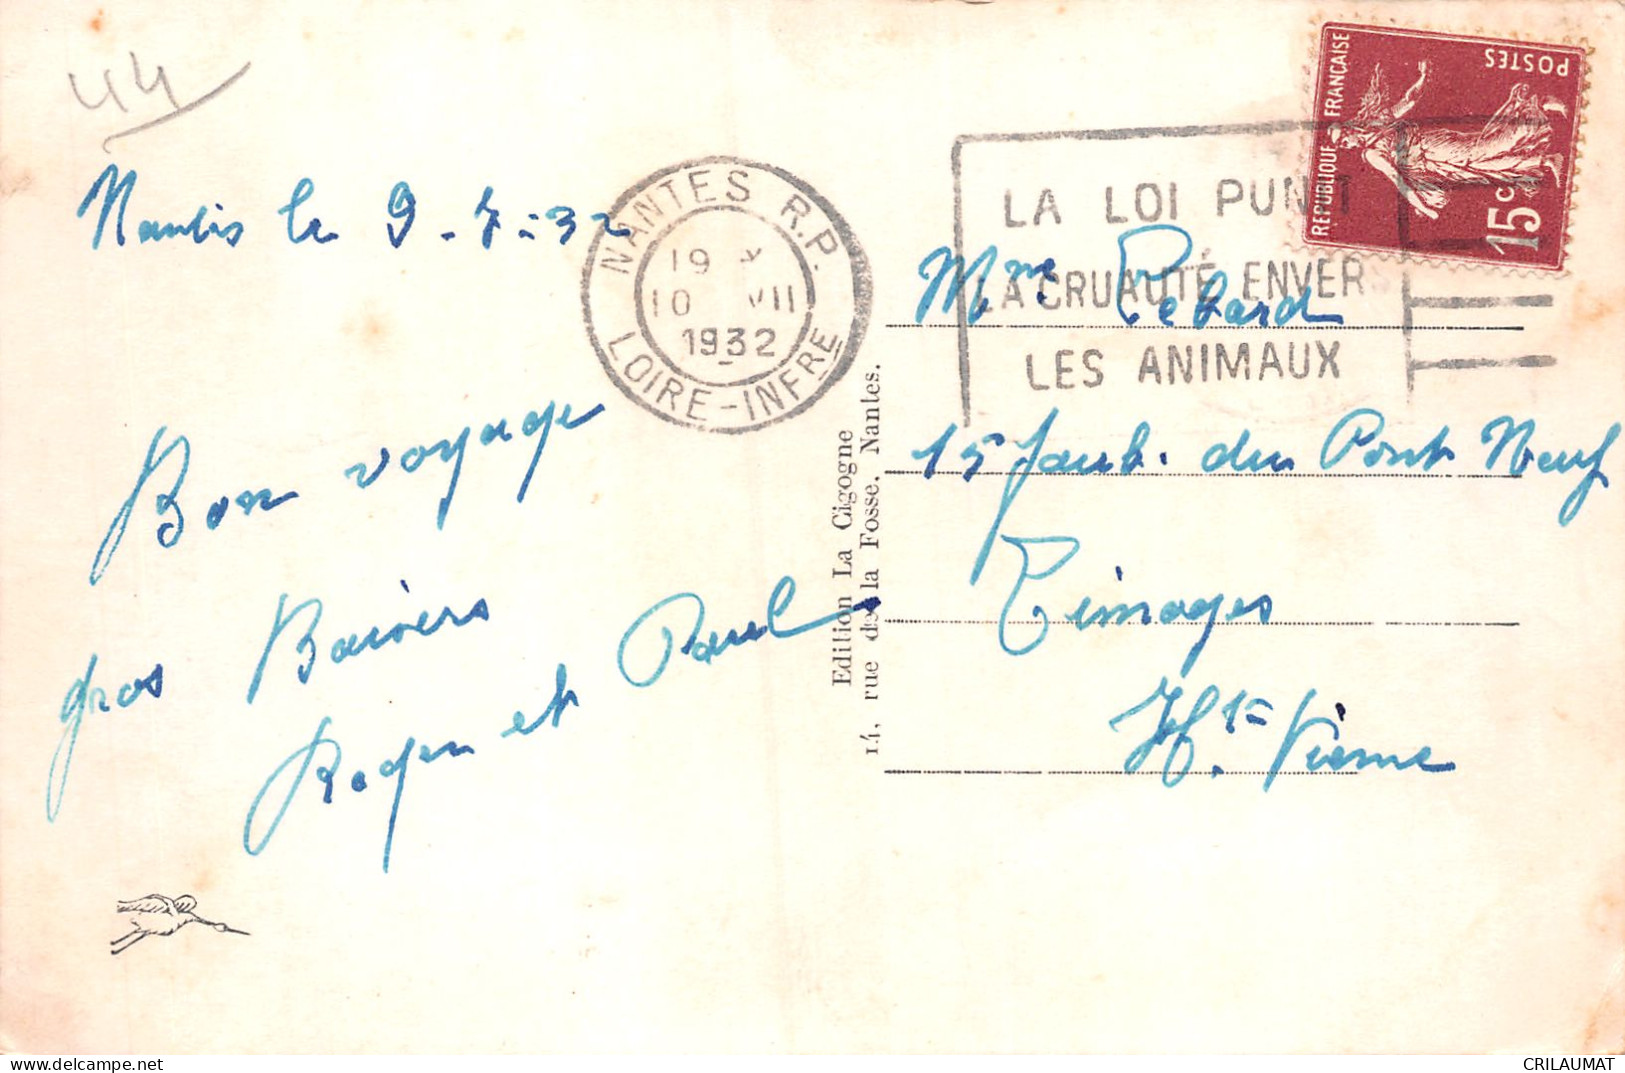 44
Nantes le 9-7-32
Bon voyage
gros Baisers
Roger et Paul
NANTES R.P.
19
10 VII
1932
LOIRE-INFRE
Edition La Cigogne
14, rue de la Fosse, Nantes.
LA LOI PUNIT
LA CRUAUTÉ ENVERS
LES ANIMAUX
REPUBLIQUE FRANÇAISE
POSTES
15c
Mme
15 faub. du Pont Neuf
Limoges
Hte Vienne
CRILAUMAT